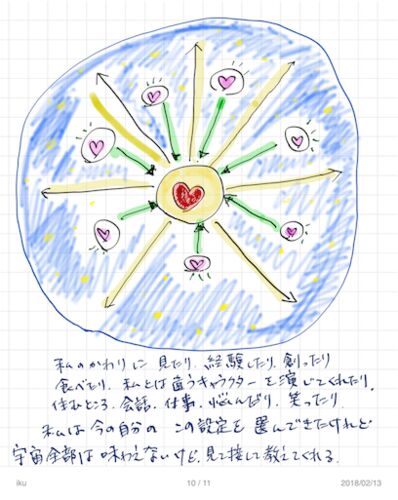 私のかわりに 見たり、経験したり、創ったり
食べたり、私とは違うキャラクターを演じてくれたり、
住むところ、会話、仕事、悩んだり、笑ったり
私は今の自分の この設定を 選んできたけれど
宇宙全部は 味わえないけど、見て接して教えてくれる。
iku
10 / 11
2018/02/13